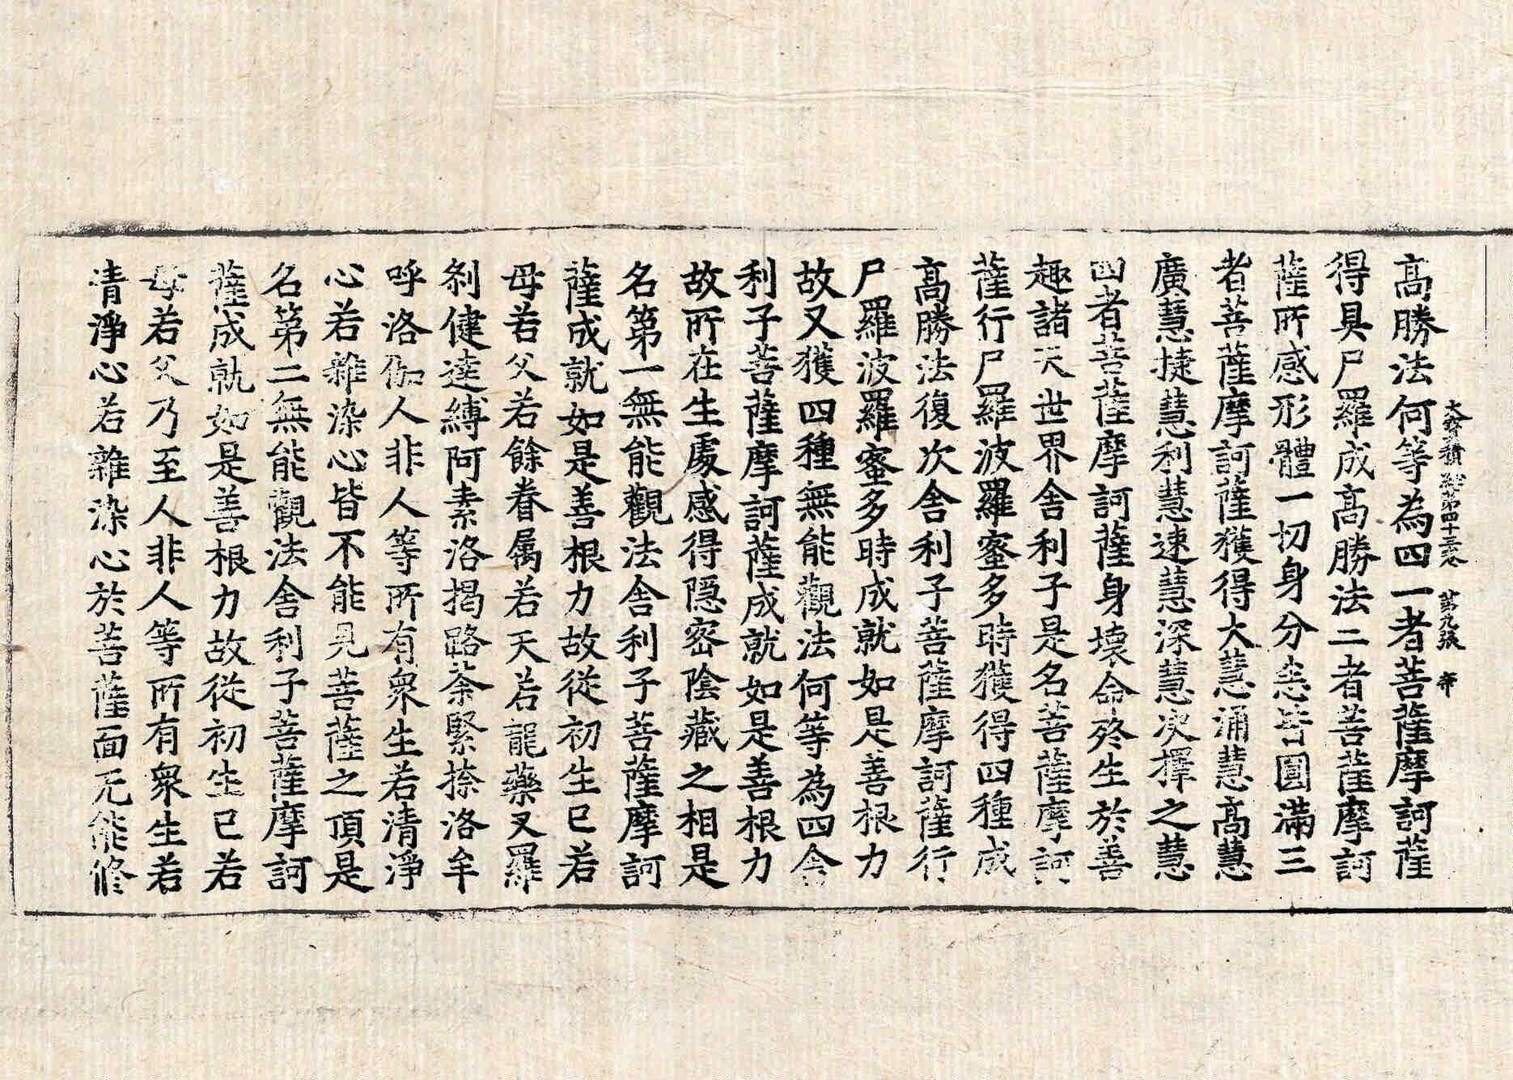 大寶積經第四十三卷 第九張 帝
高勝法何等為四一者菩薩摩訶薩
得具尸羅成高勝法二者菩薩摩訶
薩所感形體一切身分悉皆圓滿三
者菩薩摩訶薩獲得大慧涌慧高慧
廣慧捷慧利慧速慧深慧決擇之慧
四者菩薩摩訶薩身壞命終生於善
趣諸天世界舍利子是名菩薩摩訶
薩行尸羅波羅蜜多時獲得四種成
高勝法復次舍利子菩薩摩訶薩行
尸羅波羅蜜多時成就如是善根力
故又獲四種無能觀法何等為四舍
利子菩薩摩訶薩成就如是善根力
故所在生處感得隱密陰藏之相是
名第一無能觀法舍利子菩薩摩訶
薩成就如是善根力故從初生已若
母若父若餘眷属若天若龍藥叉羅
剎健達縛阿素洛揭路荼緊捺洛牟
呼洛伽人非人等所有衆生若清淨
心若雜染心皆不能見菩薩之頂是
名第二無能觀法舍利子菩薩摩訶
薩成就如是善根力故從初生已若
母若父乃至人非人等所有衆生若
清淨心若雜染心於菩薩面无能修